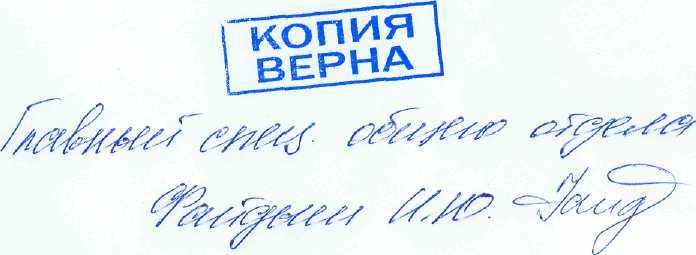 КОПИЯ
ВЕРНА
Главный спец. общего отдела
И.Ю.